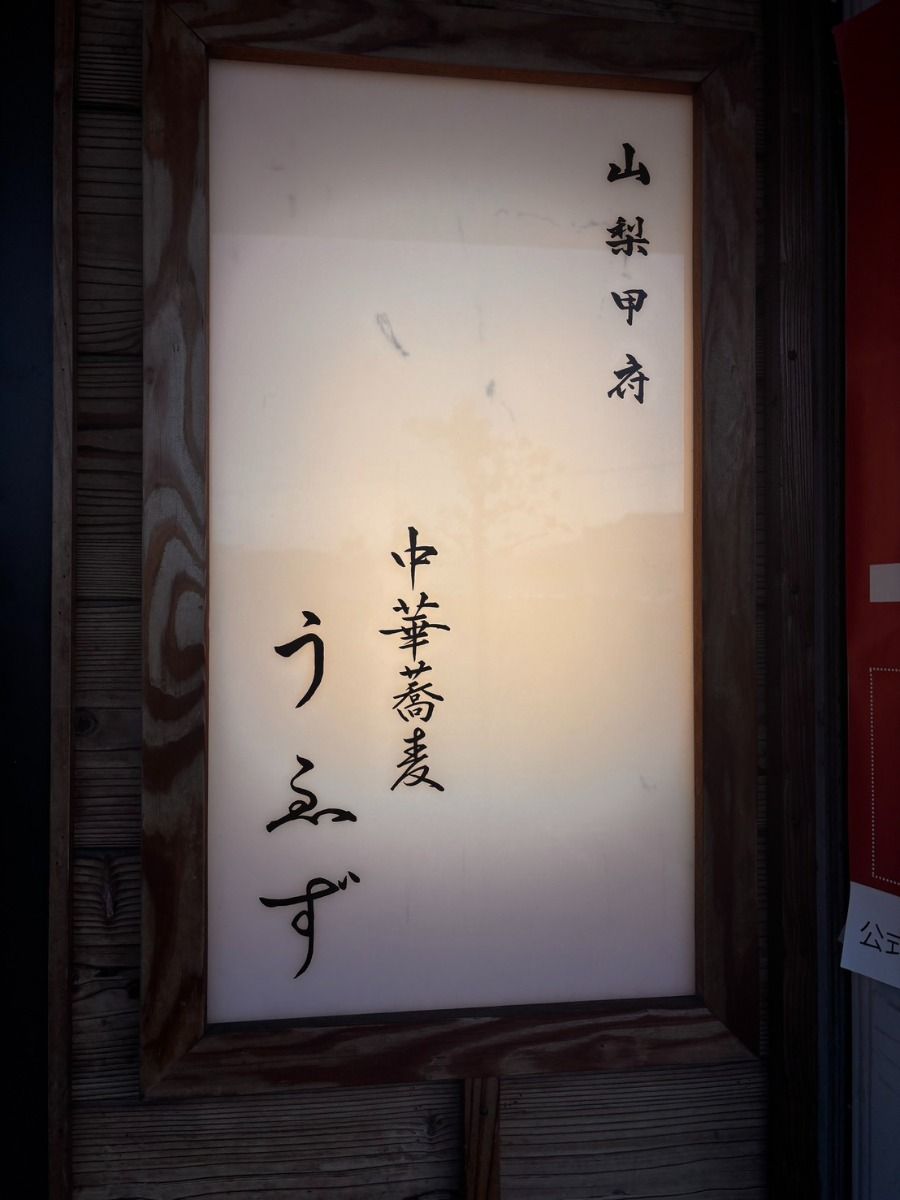 山梨甲府
中華蕎麦
うゑず
公式